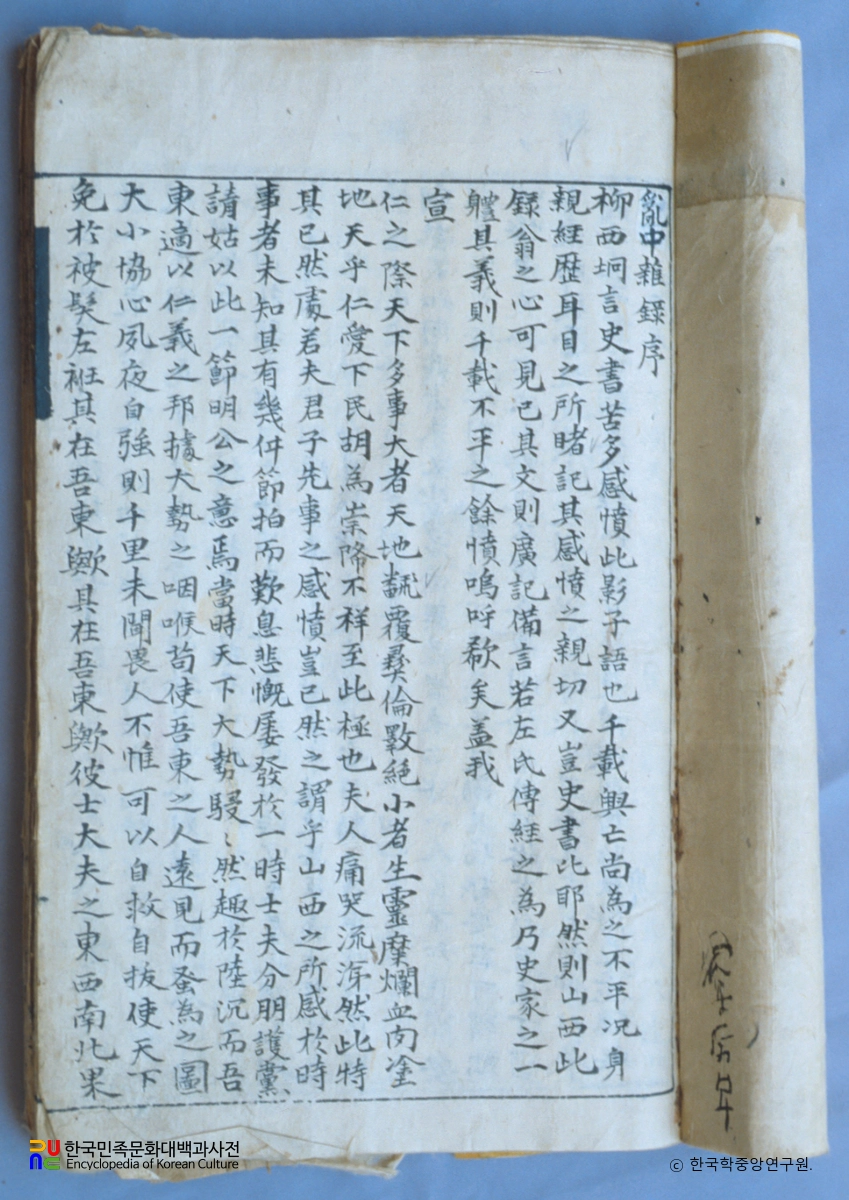 亂中雜錄序
柳西坰言史書苦多感憤此影子語也千載興亡尚為之不平况身
親經歷耳目之所睹記其感憤之親切又豈史書比耶然則山西此
錄翁之心可見已其文則廣記備言若左氏傳經之為乃史家之一
軆其義則千載不平之餘憤嗚呼欷矣盖我
宣
仁之際天下多事大者天地飜覆彛倫斁絕小者生靈糜爛血肉塗
地天乎仁愛下民胡為崇降不祥至此極也夫人痛哭流涕然此特
其已然處若夫君子先事之感憤豈已然之謂乎山西之所感於時
事者未知其有幾件節拍而歎息悲慨屡發於一時士夫分朋護黨
請姑以此一節明公之意焉當時天下大勢駸〻然趣於陸沉而吾
東適以仁義之邦據大勢之咽喉苟使吾東之人遠見而蚤為之圖
大小協心夙夜自強則千里未聞畏人不惟可以自救自拔使天下
免於被髮左袵其在吾東歟其在吾東歟彼士大夫之東西南北果
한국민족문화대백과사전
Encyclopedia of Korean Culture
© 한국학중앙연구원.